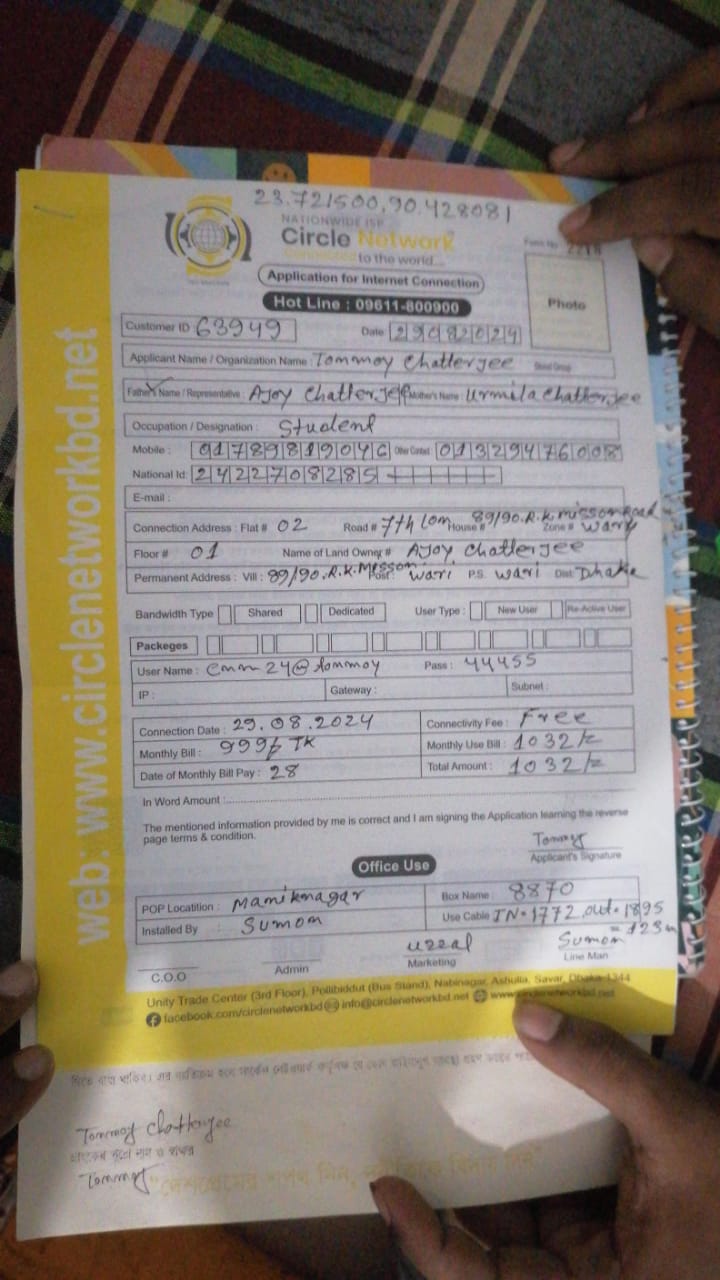 23.721500,90.428081
NATIONWIDE ISP
Circle Network
Connected to the world...
Application for Internet Connection
Form No 2218
Hot Line : 09611-800900
Photo
Customer ID : 63949 Date 29082024
Applicant Name / Organization Name : Tommoy Chatterjee Blood Group
Father's Name / Representative : Ajoy Chatterjee Mother's Name : Urmila Chatterjee
Occupation / Designation : Student
Mobile : 01789819046 Other Contact 01329476008
National Id: 2422708285
E-mail :
Connection Address : Flat # 02 Road # 7th Lom House # 89/90.R.k.misson Road Zone # Wary
Floor # 01 Name of Land Owner # Ajoy chatterjee
Permanent Address : Vill : 89/90.R.k.Misson Post : Wari P.S. Wari Dist: Dhaka
Bandwidth Type Shared Dedicated User Type : New User Re-Active User
Packeges
User Name : cmm24@tommoy Pass : 44455
IP : Gateway : Subnet :
Connection Date : 29.08.2024 Connectivity Fee : Free
Monthly Bill : 999/= TK Monthly Use Bill : 1032/=
Date of Monthly Bill Pay : 28 Total Amount : 1032/=
In Word Amount :
The mentioned information provided by me is correct and I am signing the Application learning the reverse
page terms & condition.
Tommoy
Applicant's Signature
Office Use
POP Locatition : Maniknagar Box Name : 8870
Installed By : Sumon Use Cable IN=1772,out=1895
=123m
uzzal Sumon
C.O.O Admin Marketing Line Man
Unity Trade Center (3rd Floor), Pollibiddut (Bus Stand), Nabinagar, Ashulia, Savar, Dhaka-1344
facebook.com/circlenetworkbd info@circlenetworkbd.net www.circlenetworkbd.net
web: www.circlenetworkbd.net
Tommoy Chatterjee
Tommoy